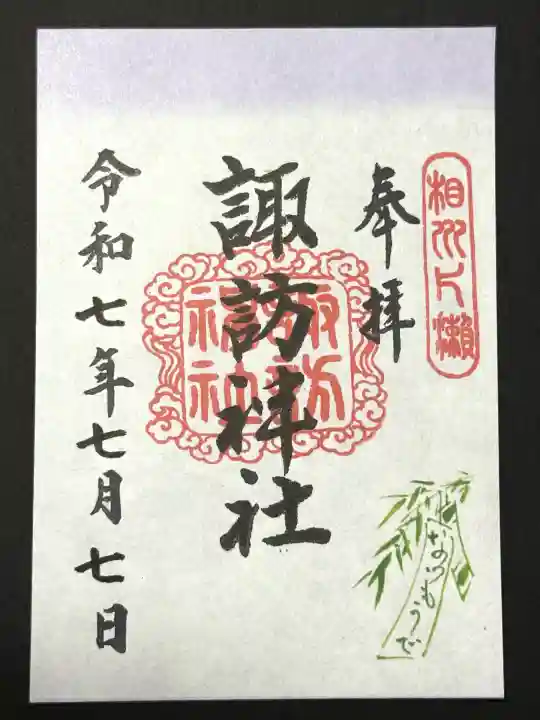 相州片瀬
奉拝
諏訪神社
諏訪神社
令和七年七月七日
なつもうで